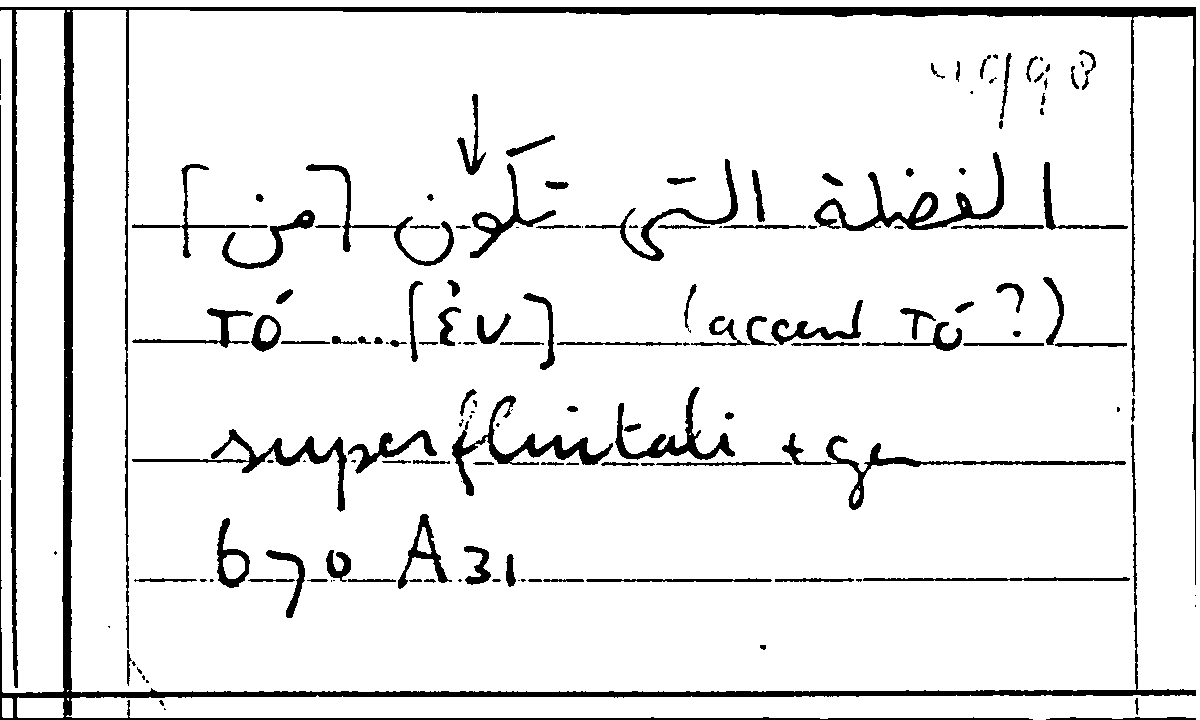 الفضلة التى تكون [من]
τό ..... [ἐν] (accent τό ?)
superfluitati + gen
670 A 31